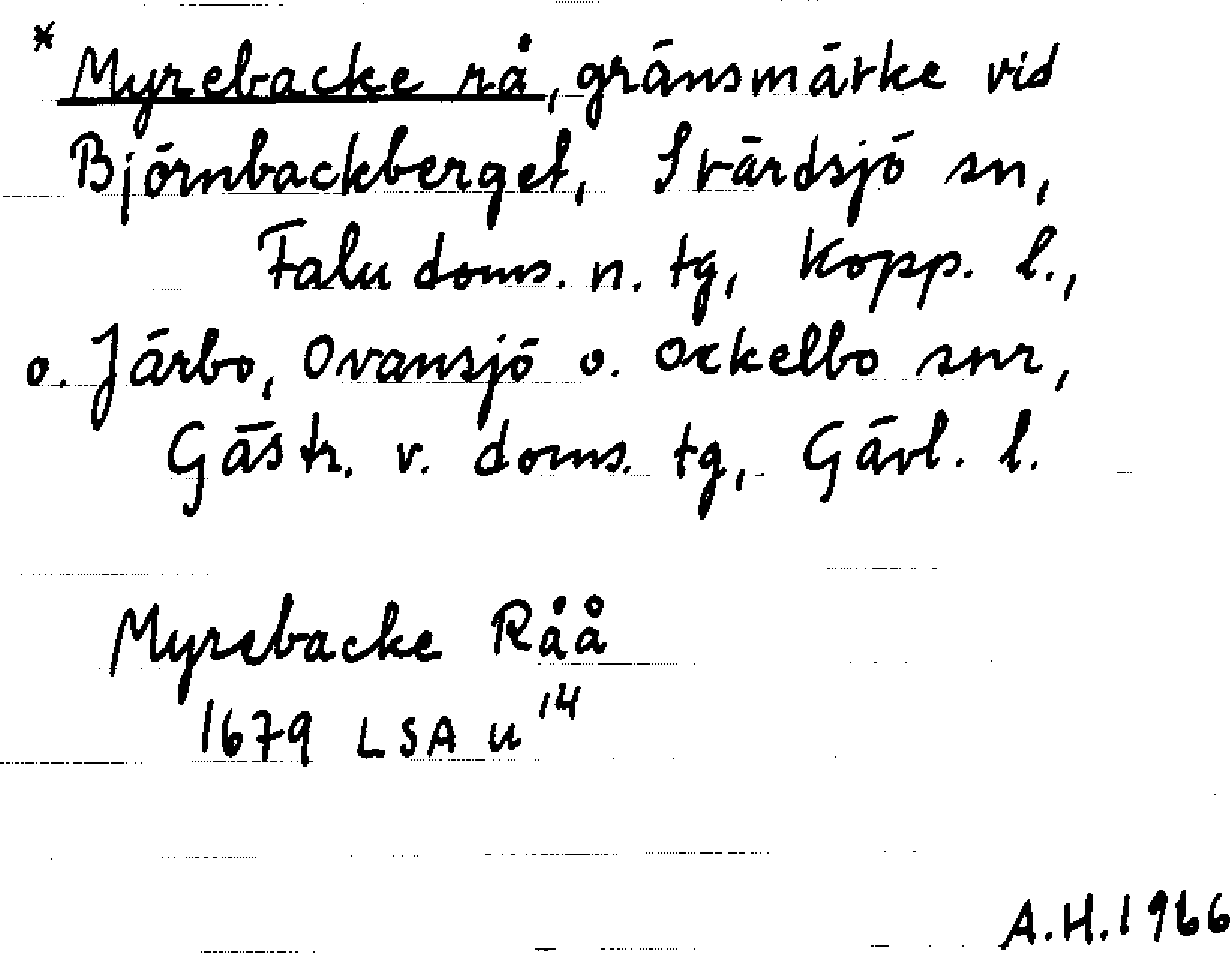 * Myrebacke rå, gränsmärke vid
Björnbackberget, Svärdsjö sn,
Falu doms. n. tg, Kopp. l.,
o. Järbo, Ovansjö o. Ockelbo snr,
Gästr. v. doms. tg, Gävl. l.
Myrebacke Råå
1679 LSA U 14
A.H. 1966